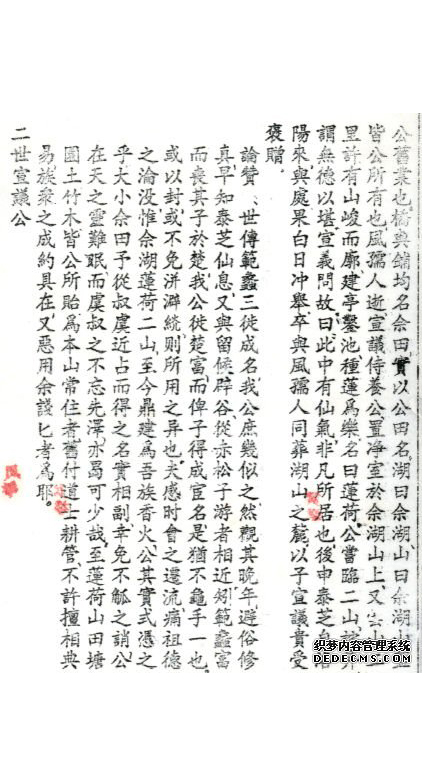 公舊業也橋與鋪均名余田實以公田名湖曰余湖山曰余湖山
皆公所有也風孺人逝宣議侍養公置净室於余湖山上又去山
里許有山峻而廓建亭鑿池種蓮為樂名曰蓮荷公嘗臨二山
謂無德以堪宣義問故曰此中有仙氣非凡所居也後申泰芝自洛
陽來與處果白日冲舉卒與風孺人同葬湖山之麓以子宣議貴受
褒贈。
論贊、世傳範蠡三徙成名我公庶幾似之然觀其晚年避俗修
真早知泰芝仙息又與留候辟谷從赤松子游者相近矧範蠡富
而喪其子於楚我公徙楚富而俾子得成宦名是猶不龜手一也
或以封或不免洴澼統則所用之异也夫感时會之遷流痛祖德
之淪没惟余湖蓮荷二山至今鼎建為吾族香火公其實式憑之
乎大小余田予從叔虞近占而得之名實相副幸免不觚之誚公
在天之靈難眠而虞叔之不忘先澤亦曷可少哉至蓮荷山田塘
園土竹木皆公所貽為本山常住者舊付道士耕管不許擅相典
易族衆之成約具在又惡用余諓匕考為耶。
二世宣議公
織夢内容管理系统
DEDECMS.COM